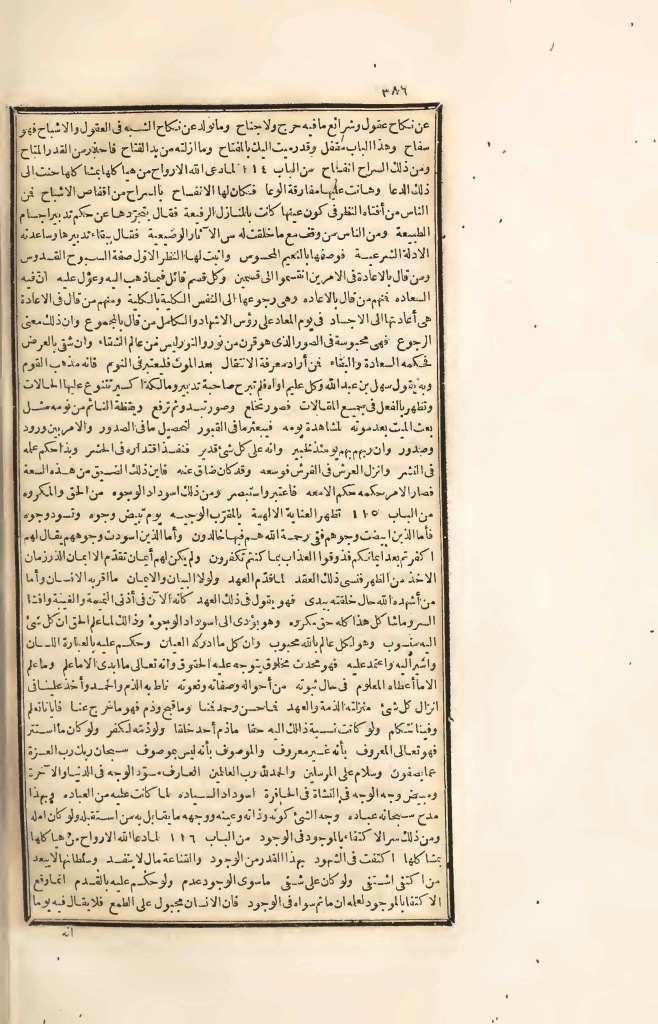 ٣٨٦
عن نكاح عقول وشرائع ما فيه حرج ولا جناح وما تولد عن نكاح الشبه فى العقول والاشباح فهو
سفاح وهذا الباب مقفل وقد رميت اليك بالمفتاح وما زلته من يد الفتاح فاحذر من القدر المتاح
ومن ذلك السراح انفساح من الباب ١١٤ لما دعى الله الارواح من هياكلها بمشاكلها حنت الى
ذلك الدعا وهانت عليها مفارقة الوعا فكان لها الانفساح بالسراح من اقفاص الاشباح فمن
الناس من أفتاه النظر فى كون عينها كانت بالمنازل الرفيعة فقال بتجردها عن حكم تدبير اجسام
الطبيعة ومن الناس من وقف مع ما خلقت له من الآثار الوضيعية فقال ببقاء تدبيرها وساعدته
الادلة الشرعية فوصفها بالنعيم المحسوس وأثبت لها النظر الاول صفة السبوح القدوس
ومن قال بالاعادة فى الامرين انقسموا الى قسمين وكل قسم قائل فيما ذهب اليه وعوّل عليه ان فيه
السعاده فمنهم من قال بالاعاده وهى رجوعها الى النفس الكلية بالكلية ومنهم من قال فى الاعادة
هى أعادتها الى الاجساد فى يوم المعاد على رؤس الاشهاد والكامل من قال بالمجموع وان ذلك معنى
الرجوع فهى محبوسة فى الصور الذى هو قرن من نور والنور ليس من عالم الشقاء وان شقى بالعرض
فحكمه السعادة والبقاء فمن أراد معرفة الانتقال بعد الموت فليعتبر فى النوم فانه مذهب القوم
وبه يقول سهل بن عبد الله وكل عليم اواه فلم تبرح صاحبة تدبير ومالكة اكسير تتنوع عليها الحالات
وتظهر بالفعل فى جميع المقالات فصور تخلع وصور تبدو ثم ترفع ويقظة النائم من نومه مثل
بعث الميت بعد موته لمشاهدة يومه فيبعثر ما فى القبور لتحصيل ما فى الصدور والامر بين ورود
وصدور وان ربهم بهم يومئذ لخبير وانه على كل شئ قدير فنفذ اقتداره فى الحشر وبدا حكم علمه
فى النشر وانزل العرش فى الفرش فوسعه وقد كان ضاق عنه فاين ذلك الضيق من هذه السعة
فصار الامر حكمه حكم الامعه فاعتبر واستبصر ومن ذلك اسوداد الوجوه من الحق والمكروه
من الباب ١١٥ تظهر العناية الالهية بالمقرب الوجيه يوم تبيض وجوه وتسود وجوه
فأما الذين ابيضت وجوههم ففى رحمة الله هم فيها خالدون وأما الذين اسودت وجوههم يقال لهم
اكفرتم بعد ايمانكم فذوقوا العذاب بما كنتم تكفرون ولم يكن لهم أيمان تقدّم الا ايمان الذر زمان
الاخذ من الظهر فنسى ذلك العقد لما قدم العهد ولولا البيان والايمان ما أقر به الانسان وأما
من أشهده الله حال خلقته بيدى فهو يقول فى ذلك العهد كأنه الآن فى أذنى النميمة والغيبة وافشا
السر وما شاكل هذا كله حق مكروه وهو يؤدى الى اسوداد الوجوه وذلك لما علم الحق ان كل شئ
اليه منسوب وهو لكل عالم بالله محبوب وان كل ما ادركه العيان وحكم عليه بالعبارة اللسان
واشر اليه واعتمد عليه فهو محدث مخلوق يتوجه عليه الحقوق وانه تعالى ما ابدى الا ما علم وما علم
الا ما أعطاه المعلوم فى حال ثبوته من أحواله وصفاته ونعوته ناط به الذم والحمد وأخذ علينا فى
انزال كل شئ منزلته الذمة والعهد فما حسن وحمد فمنا وما قبح وذم فهو ما خرج عنا فايانا نعلم
وفينا نتكلم ولو كانت نسبة ذلك اليه حقا ما ذم أحد خلقا ولو ذمه لكفر ولو كان ما استتر
فهو تعالى المعروف بأنه غير معروف والموصوف بأنه ليس بموصوف سبحان ربك رب العزة
عما يصفون وسلام على المرسلين والحمد لله رب العالمين العارف مسود الوجه فى الدنيا والآخرة
ومبيض وجه الوجه فى النشاة فى الحافرة اسوداد السياده لما كانت عليه من العباده وبهذا
مدح سبحانه عباده وجه الشئ كونه وذاته وعينه ووجهه ما يقابل به من استقبله ولو كان امله
ومن ذلك سر الاكتفاء بالموجود فى الوجود من الباب ١١٦ لما دعا الله الارواح من هياكلها
بمشاكلها اكتفت فى الشهود بهذا القدر من الوجود والقناعة مال لا ينفد وسلطانها لا يبعد
من اكتفى اشتفى ولو كان على شفى ما سوى الوجود عدم ولو حكم عليه بالقدم انما وقع
الاكتفا بالموجود لعلمه ان ما ثم سواه فى الوجود فان الانسان مجبول على الطمع فلا يقال فيه يوما
انه